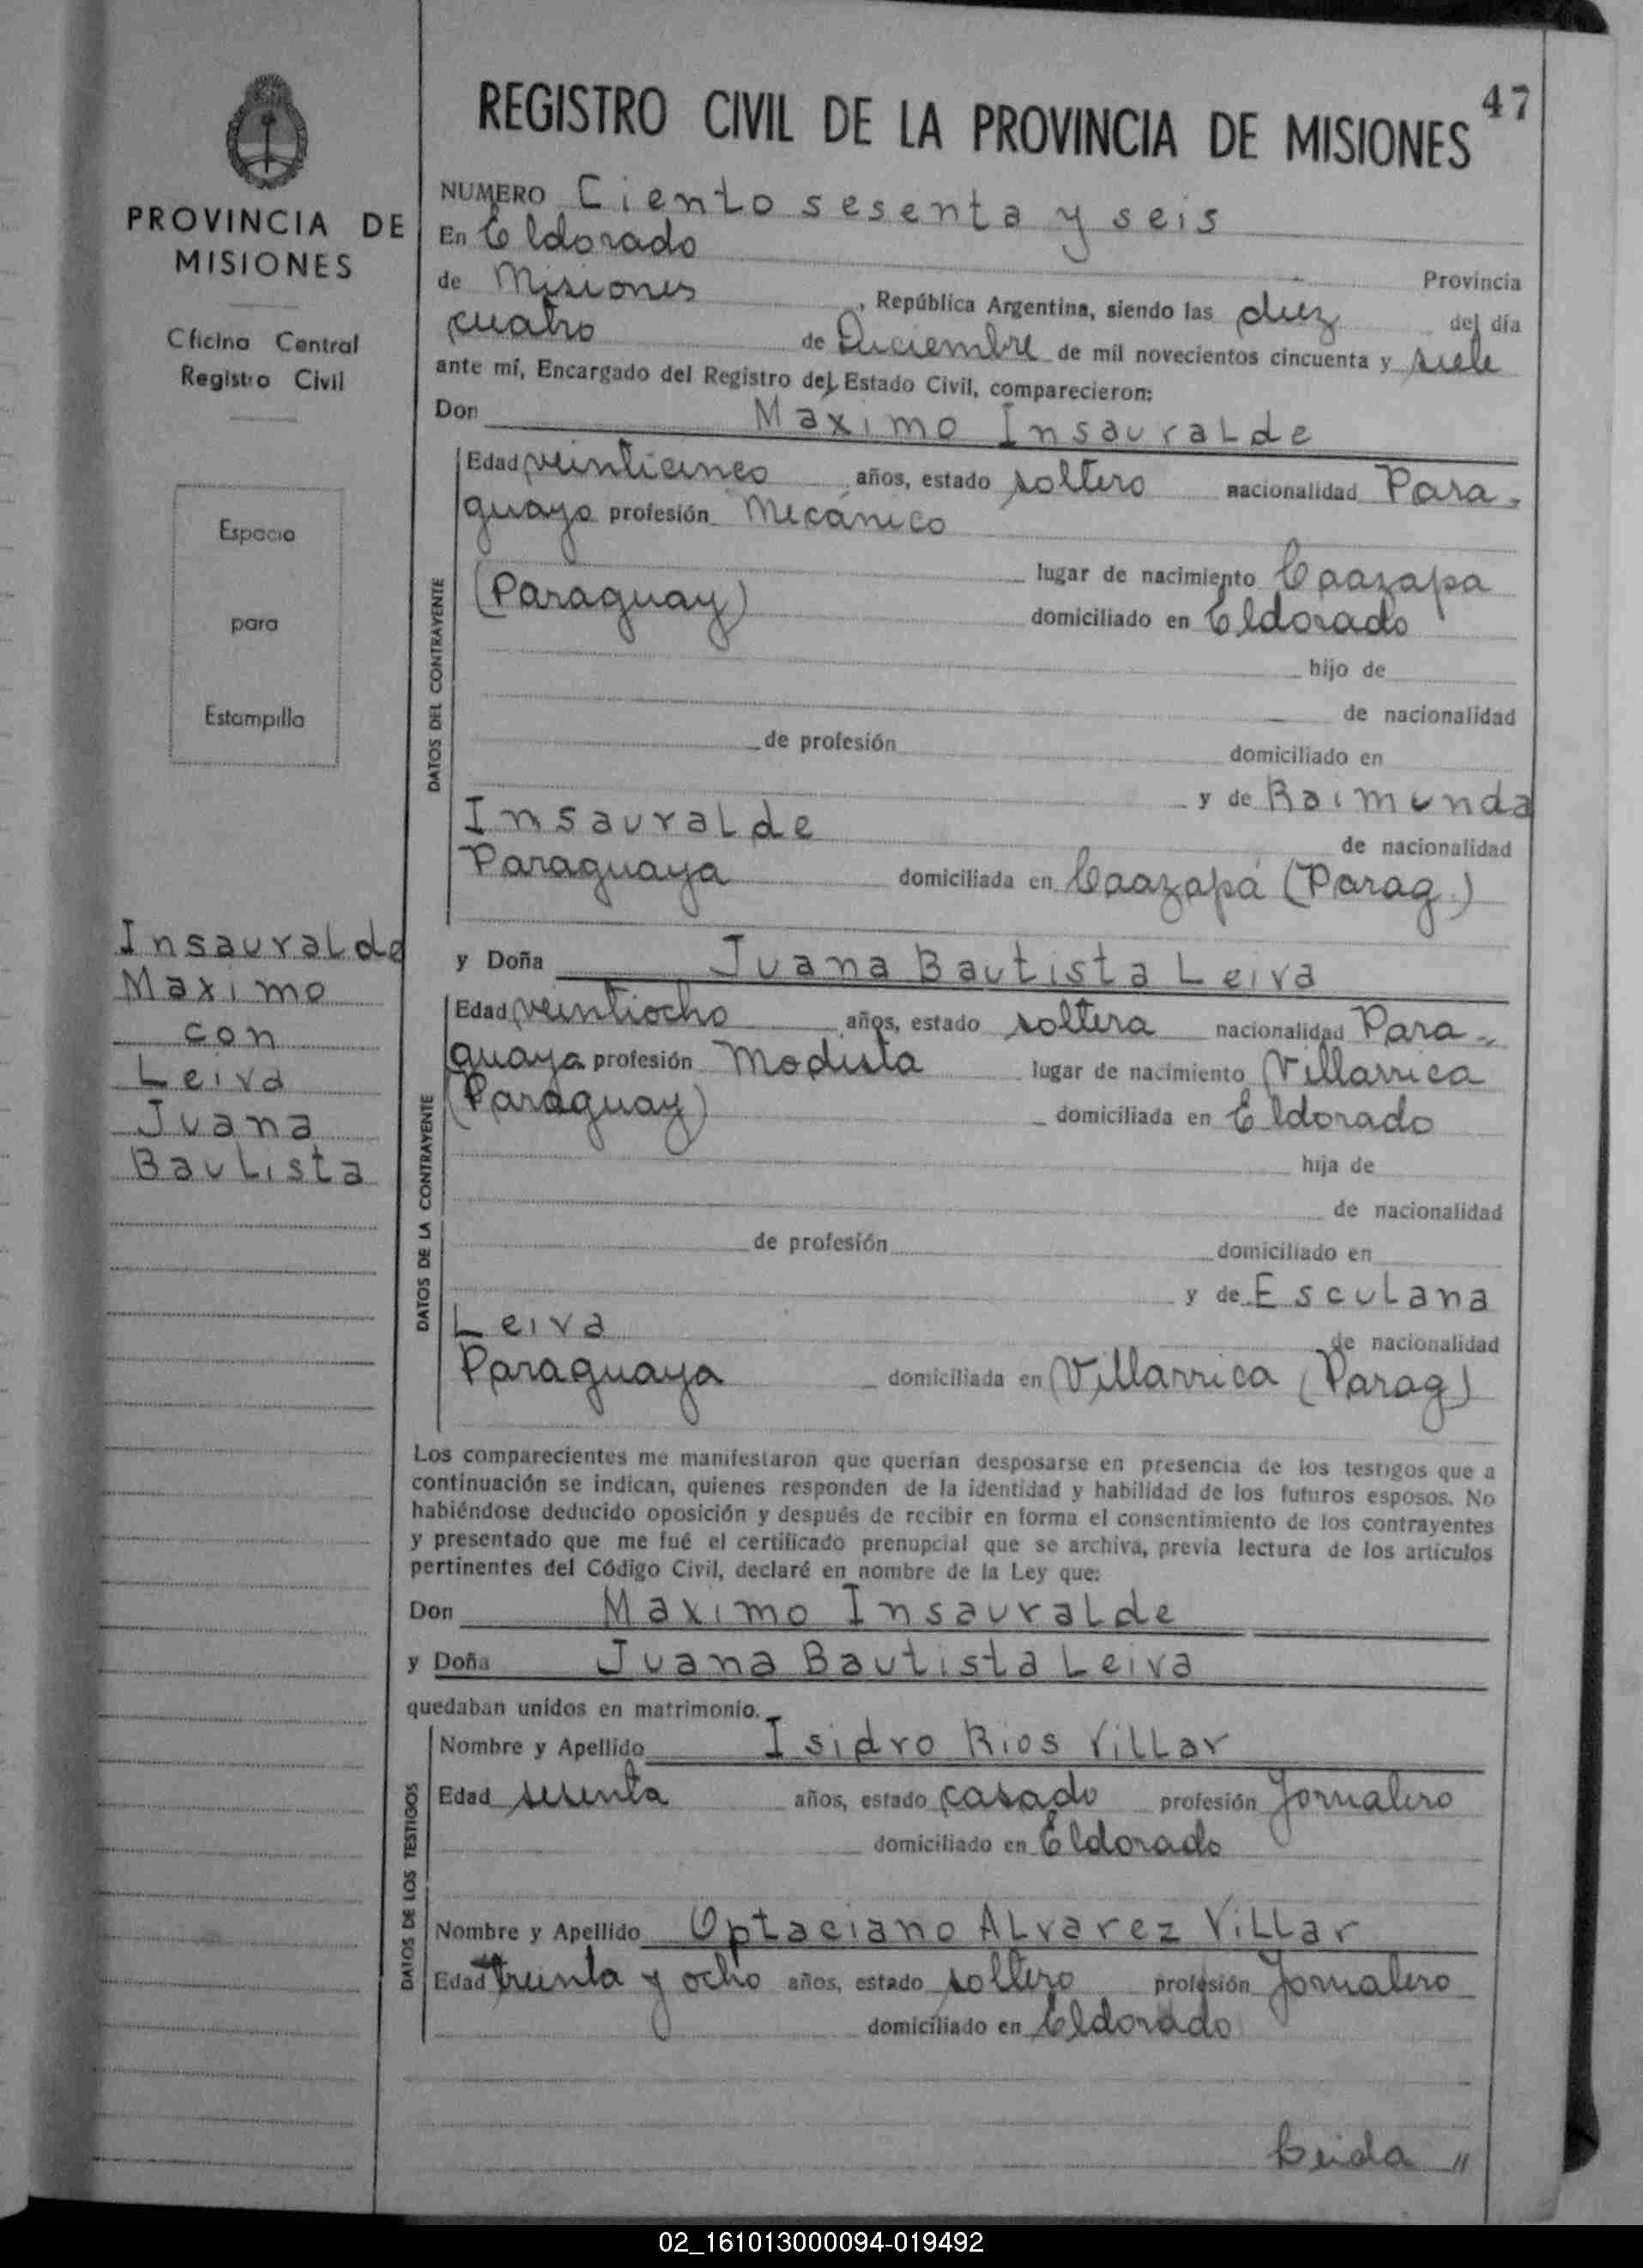 47
REGISTRO CIVIL DE LA PROVINCIA DE MISIONES
PROVINCIA DE
MISIONES
Oficina Central
Registro Civil
Espacio
para
Estampilla
Insauralde
Maximo
con
Leiva
Juana
Bautista
NUMERO Ciento sesenta y seis
En Eldorado
Provincia
de Misiones, República Argentina, siendo las diez del día
cuatro de Diciembre de mil novecientos cincuenta y siete
ante mí, Encargado del Registro del Estado Civil, comparecieron:
Don Maximo Insauralde
DATOS DEL CONTRAYENTE
Edad veinticinco años, estado soltero nacionalidad Para-
guayo profesión Mecánico
lugar de nacimiento Caazapa
(Paraguay) domiciliado en Eldorado
hijo de
de nacionalidad
de profesión domiciliado en
y de Raimunda
Insauralde
de nacionalidad
Paraguaya domiciliada en Caazapá (Parag.)
y Doña Juana Bautista Leiva
DATOS DE LA CONTRAYENTE
Edad veintiocho años, estado soltera nacionalidad Para-
guaya profesión Modista lugar de nacimiento Villarrica
(Paraguay) domiciliada en Eldorado
hija de
de nacionalidad
de profesión domiciliado en
y de Esculana
Leiva
de nacionalidad
Paraguaya domiciliada en Villarrica (Parag)
Los comparecientes me manifestaron que querían desposarse en presencia de los testigos que a
continuación se indican, quienes responden de la identidad y habilidad de los futuros esposos. No
habiéndose deducido oposición y después de recibir en forma el consentimiento de los contrayentes
y presentado que me fué el certificado prenupcial que se archiva, previa lectura de los artículos
pertinentes del Código Civil, declaré en nombre de la Ley que:
Don Maximo Insauralde
y Doña Juana Bautista Leiva
quedaban unidos en matrimonio.
DATOS DE LOS TESTIGOS
Nombre y Apellido Isidro Rios Villar
Edad sesenta años, estado casado profesión Jornalero
domiciliado en Eldorado
Nombre y Apellido Optaciano Alvarez Villar
Edad treinta y ocho años, estado soltero profesión Jornalero
domiciliado en Eldorado
Leida "
02_161013000094-019492